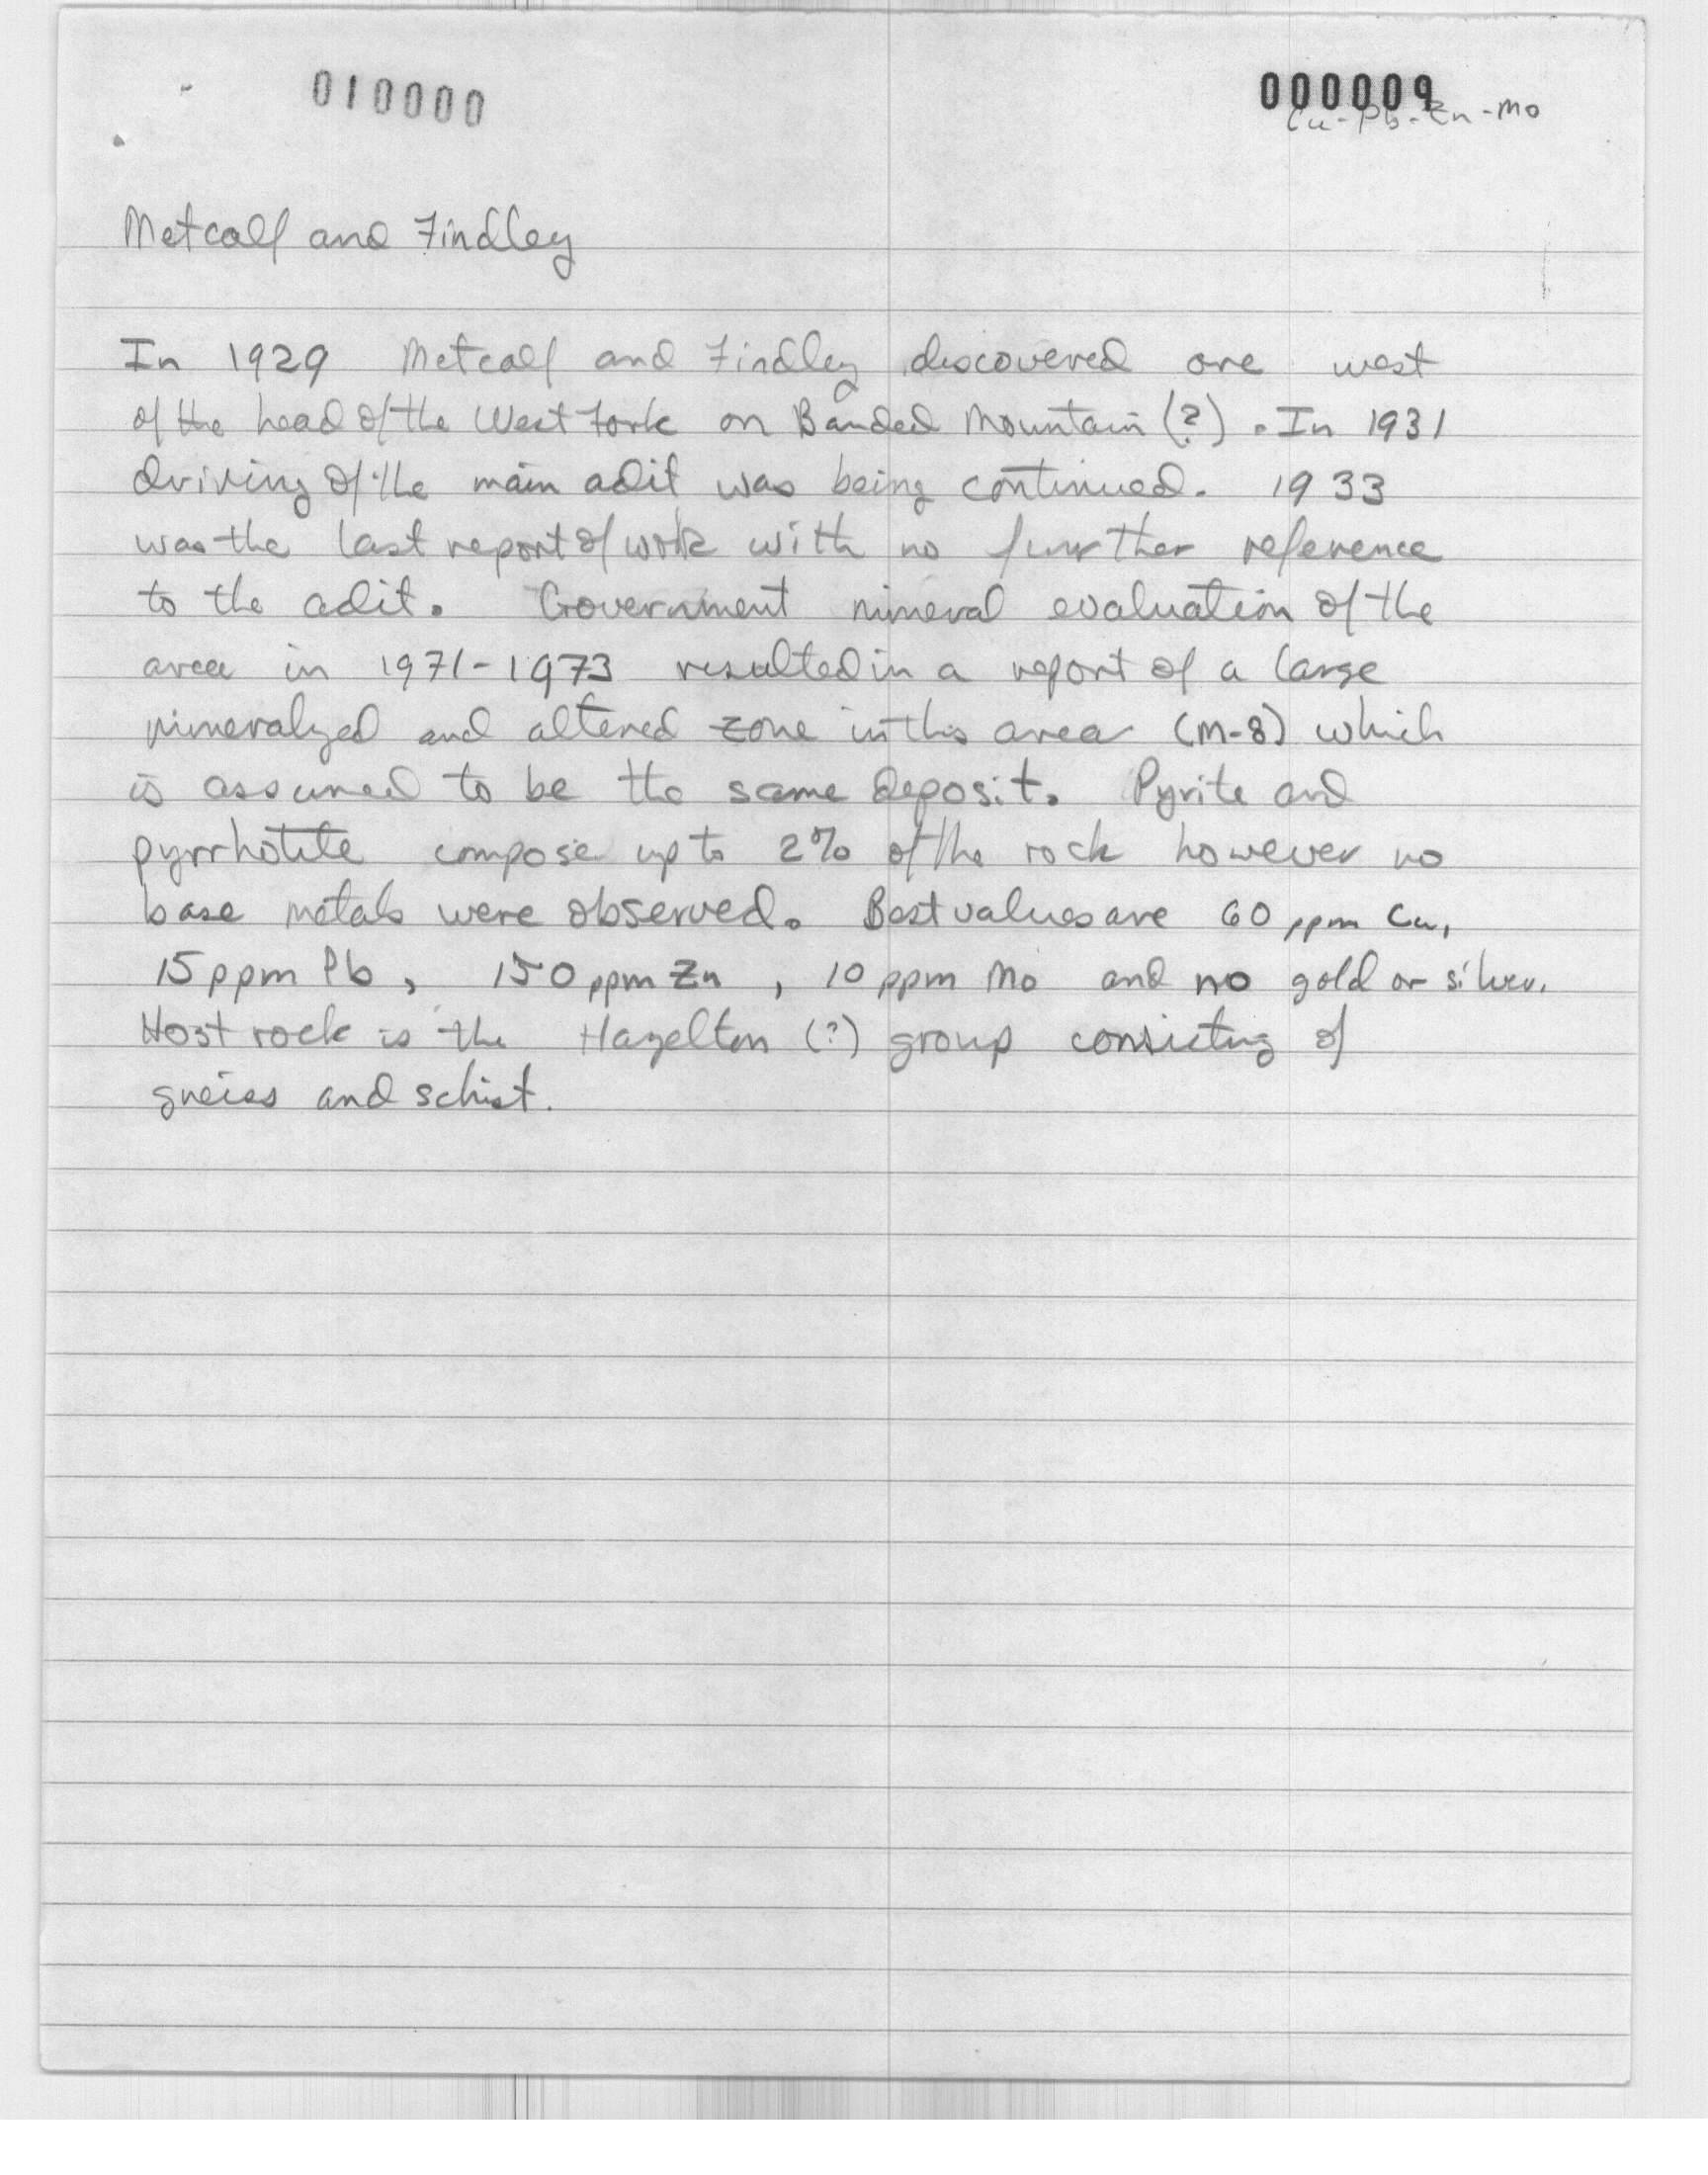 010000
000009
Cu-Pb-Zn-Mo
Metcalf and Findley
In 1929 Metcalf and Findley discovered ore west
of the head of the West Fork on Banded Mountain (?). In 1931
driving of the main adit was being continued. 1933
was the last report of work with no further reference
to the adit. Government mineral evaluation of the
area in 1971-1973 resulted in a report of a large
mineralyed and altered zone in this area (M-8) which
is assumed to be the same deposit. Pyrite and
pyrrhotite compose up to 2% of the rock however no
base metals were observed. Best values are 60 ppm Cu,
15 ppm Pb, 150 ppm Zn, 10 ppm Mo and no gold or silver.
Host rock is the Hazelton (?) group consisting of
gneiss and schist.